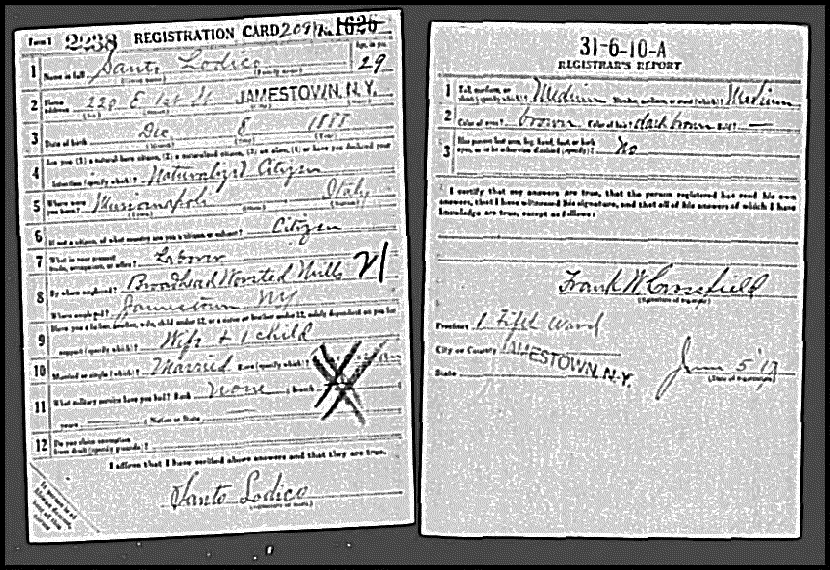 Form 1 2238 REGISTRATION CARD 209 No. 1626
1 Name in full Santo Lodico Age, in yrs. 29
(Given name) (Family name)
2 Home address 228 E 1st St JAMESTOWN, N.Y.
3 Date of birth Dec 8 1888
(Month) (Day) (Year)
4 Are you (1) a natural-born citizen, (2) a naturalized citizen, (3) an alien, (4) or have you declared your
intention (specify which)? Naturalized Citizen
5 Where were you born? Italy
(Town) (State) (Nation)
6 If not a citizen, of what country are you a citizen or subject? Citizen
7 What is your present trade, occupation, or office? Laborer 21
8 By whom employed? Broadhead Worsted Mills
Where employed? Jamestown NY
9 Have you a father, mother, wife, child under 12, or a sister or brother under 12, solely dependent on you for
support (specify which)? Wife & 1 child
10 Married or single (which)? Married Race (specify which)?
11 What military service have you had? Rank None ; branch
years ; Nation or State
12 Do you claim exemption from draft (specify grounds)?
I affirm that I have verified above answers and that they are true.
Santo Lodico
(Signature or mark)
31-6-10-A
REGISTRAR'S REPORT
1 Tall, medium, or short (specify which)? Medium Slender, medium, or stout (which)? Medium
2 Color of eyes? brown Color of hair? dark brown Bald? —
3 Has person lost arm, leg, hand, foot, or both eyes, or is he otherwise disabled (specify)? No
I certify that my answers are true, that the person registered has read his own
answers, that I have witnessed his signature, and that all of his answers of which I have
knowledge are true, except as follows:
Frank W Crossfield
(Signature of registrar)
Precinct 1 Fifth Ward
City or County JAMESTOWN, N.Y.
State
June 5 '17
(Date of registration)